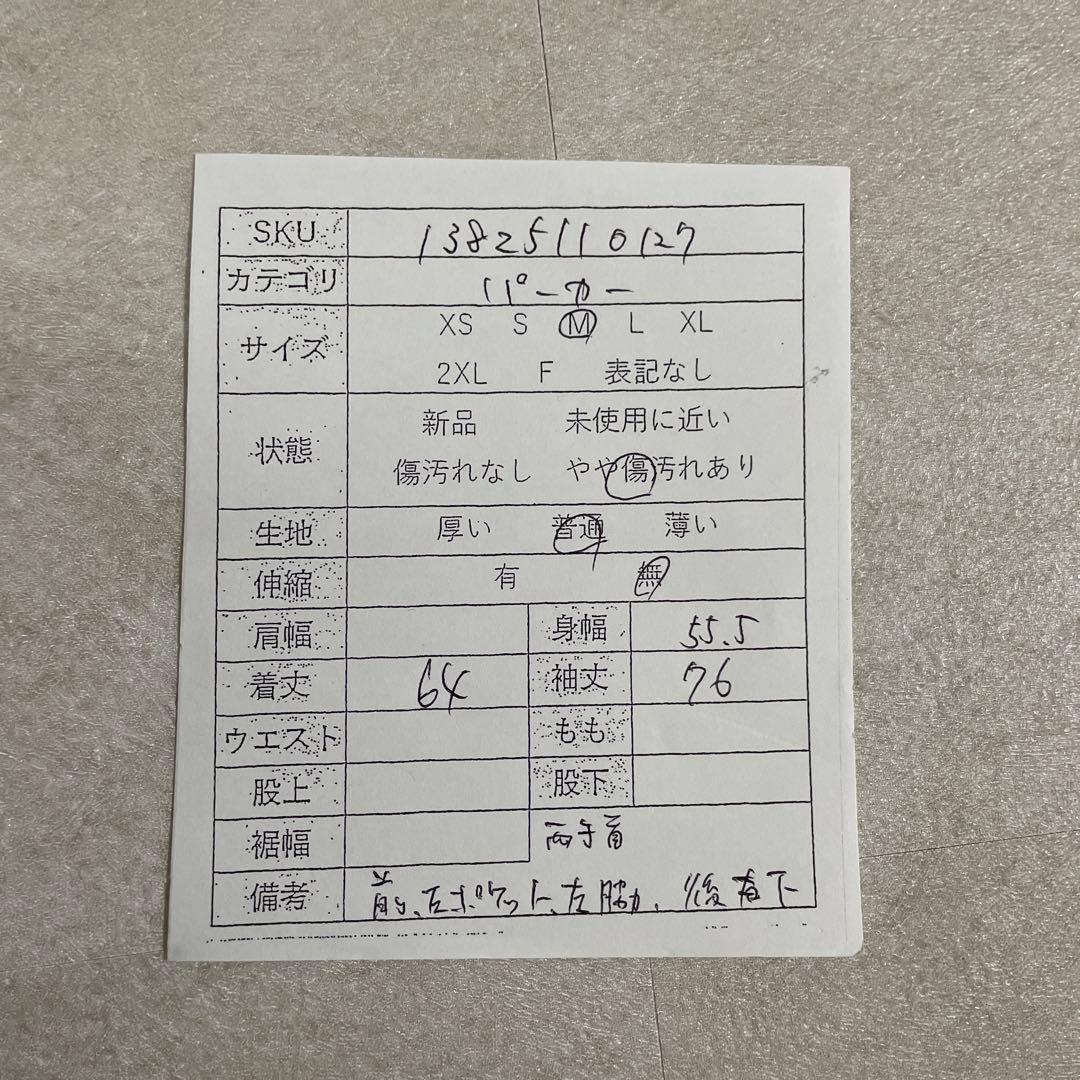 SKU 1382511 0127
カテゴリ パーカー
サイズ XS S M L XL
2XL F 表記なし
状態 新品 未使用に近い
傷汚れなし やや傷汚れあり
生地 厚い 普通 薄い
伸縮 有 無
肩幅 身幅 55.5
着丈 64 袖丈 76
ウエスト もも
股上 股下
裾幅 両手首
備考 前、左ポケット、左脇、後首下